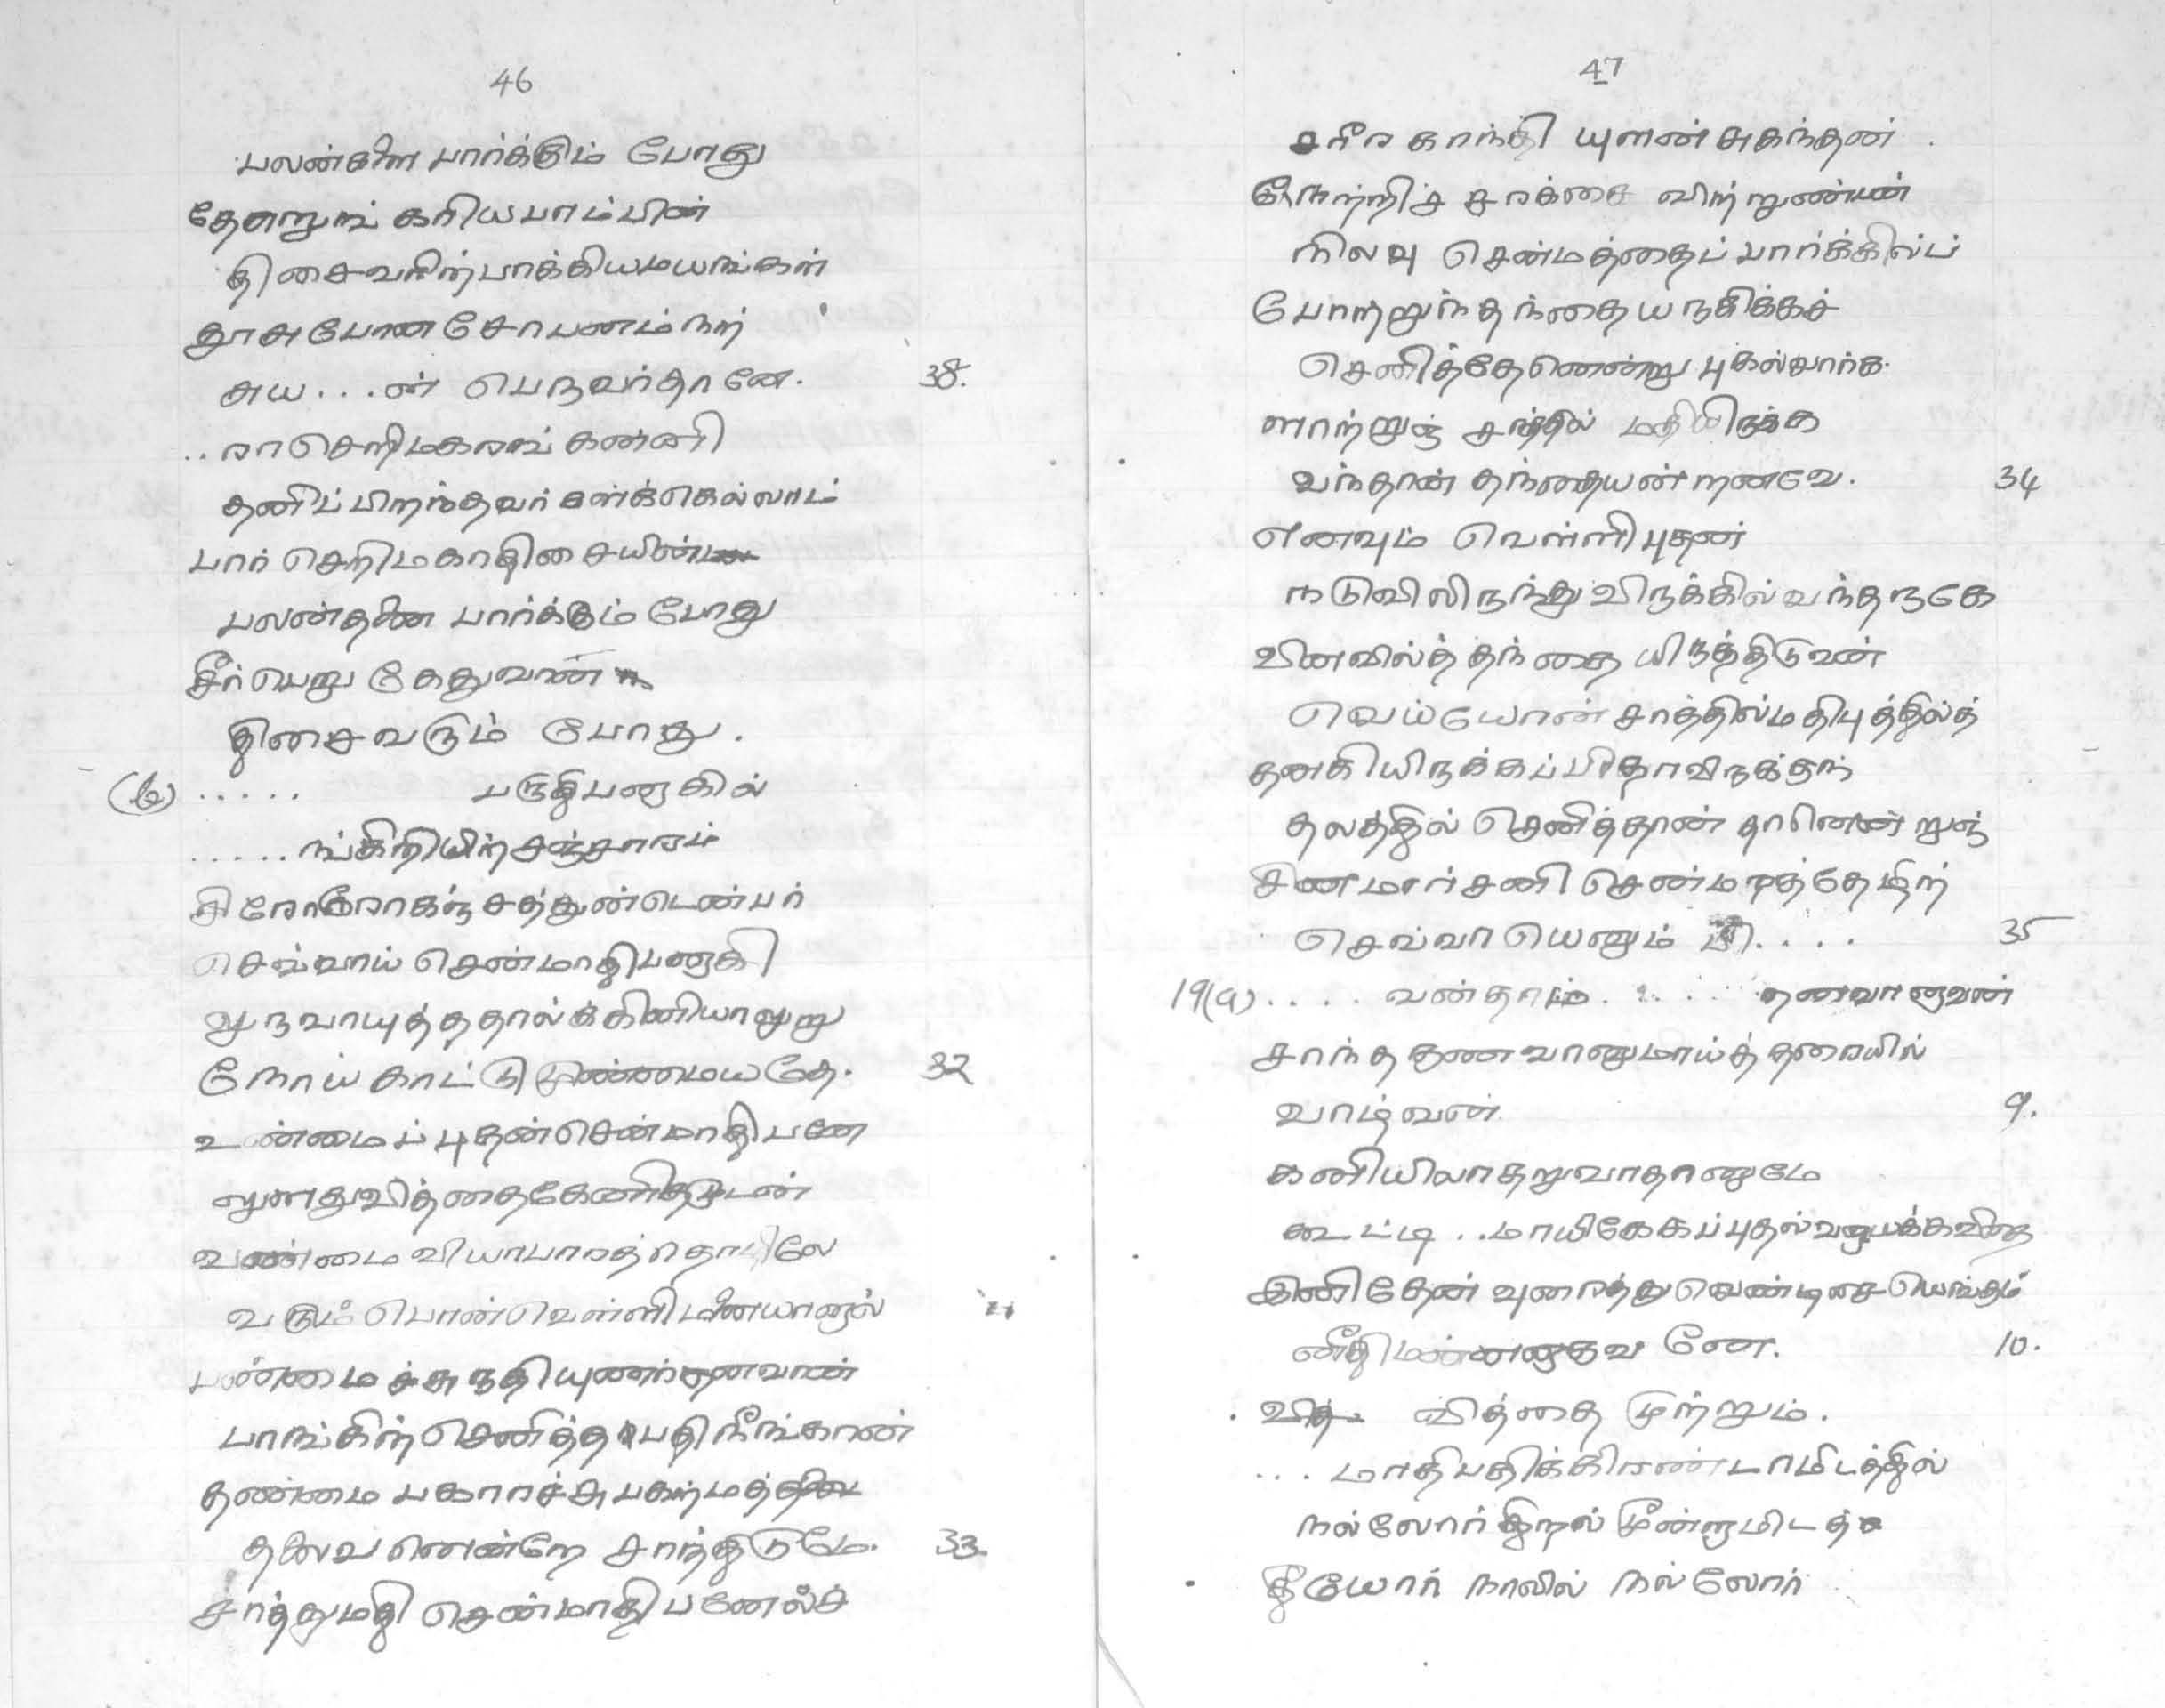 46
பலன்களை பார்க்கும் போது
தேளறுங் கரியபாம்பின்
திசைவரிற்பாக்கியமயங்கள்
தூசுபோன சோபனம்நற்
சுய...ன் பெருவர்தானே. 38.
..ராசெறிமகரங் கன்னி
தனிப்பிறந்தவர்கள்க்கெல்லாட்
பார் செறிமகாதிசையின்
பலன்தனை பார்க்கும் போது
சீர்பெறு கேதுவான்
திசைவரும் போது.
(b) ..... பருதிபனுகில்
.....ங்கிரியிற்சஞ்சாரம்
சிரோரோகஞ்சத்துண்டென்பர்
செவ்வாய் சென்மாதிபனுகி
வுருவாயுத்ததால்க்கினியாலுறு
நோய் காட்டு முண்மையதே. 32
உண்மைப்புதன்சென்மாதிபனே
லுனதுவித்தைகேணிதமுடன்
வண்மை வியாபாரத்தொழிலே
வரும் பொன்வெள்ளிமனையானுல்
பண்மைச்சுருதியுணர்தனவான்
பாங்கிற்செனித்தபதிநீங்கான்
தண்மை பகராச்சுபகற்மத்
தலைவனென்றே சார்ந்திடுமே. 33
சாந்துமதி சென்மாதிபனேல்ச்
47
சரீர காந்தி யுளன்சுகந்தன்
நேற்றிச் சரக்கை விற்றுண்பன்
நிலவு சென்மத்தைப் பார்க்கில்ப்
போற்றுந்தந்தையருகிக்கச்
செனித்தேனென்று புகல்வார்க
ளாற்றுஞ் சரத்தில் மதியிருக்க
வந்தான் தந்தையன்றனவே. 34
எனவும் வெள்ளி புதன்
நடுவிலிருந்து விருக்கில்வந்தருகே
வினவில்த்தந்தை யிருத்திடுவன்
வெய்யோன் சரத்தில்மதிபுத்தில்த்
தனகியிருக்கப்பிதாவிருக்தந்
தலத்தில் செனித்தான் தானென்றுஞ்
சினமார்சனி சென்மரத்தேழிற்
செவ்வாயெனும் .... 35
19(a) .... வன்தாம்..... தனவானுவன்
சாந்த குணவானுமாய்த்தரையில்
வாழ்வன். 9.
கனியிலாதறுவாதானுமே
கூட்டி ..மாயிகேகப்புதல்வனுயக்கவிதை
இனிதேன் வுரைத்து வெண்டிசையெங்கும்
னீதிமன்னனுகுவனே. 10.
வித்தை முற்றும்.
...மாதிபதிக்கிரண்டாமிடத்தில்
நல்லோர் திறல் மூன்றுமிடத்
தீயோர் நாலில் நல்லோர்